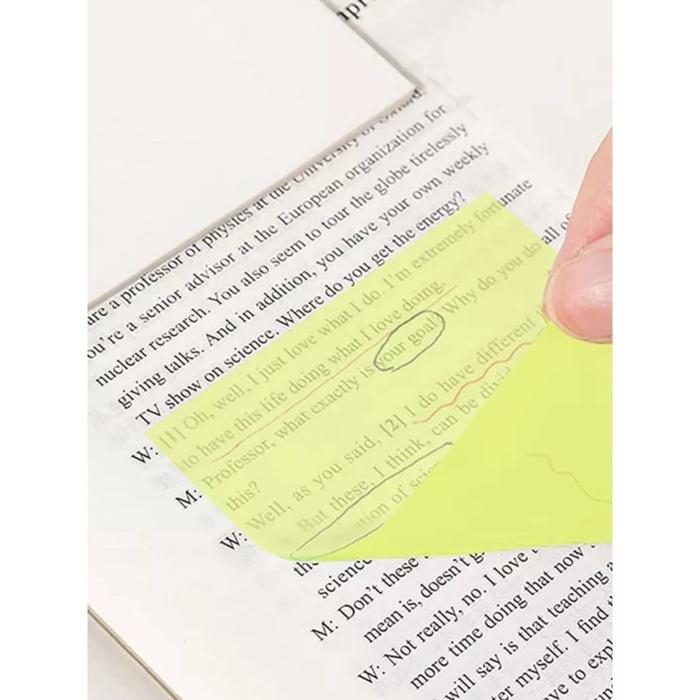 are a professor of physics at the University of Oxford.
ou're a senior advisor at the European organization for
nuclear research. You also seem to tour the globe tirelessly
giving talks. And in addition, you have your own weekly
TV show on science. Where do you get the energy?
W: [1] Oh, well, I just love what I do. I'm extremely fortunate
to have this life doing what I love doing.
M: Professor, what exactly is your goal? Why do you do all of
this?
W: Well, as you said, [2] I do have different
But these, I think, can be
tion of
science
M: Don't these
mean is, doesn't
W: Not really, no. I love
more time doing that now
will say is that teaching a
ter myself. I find
ve to